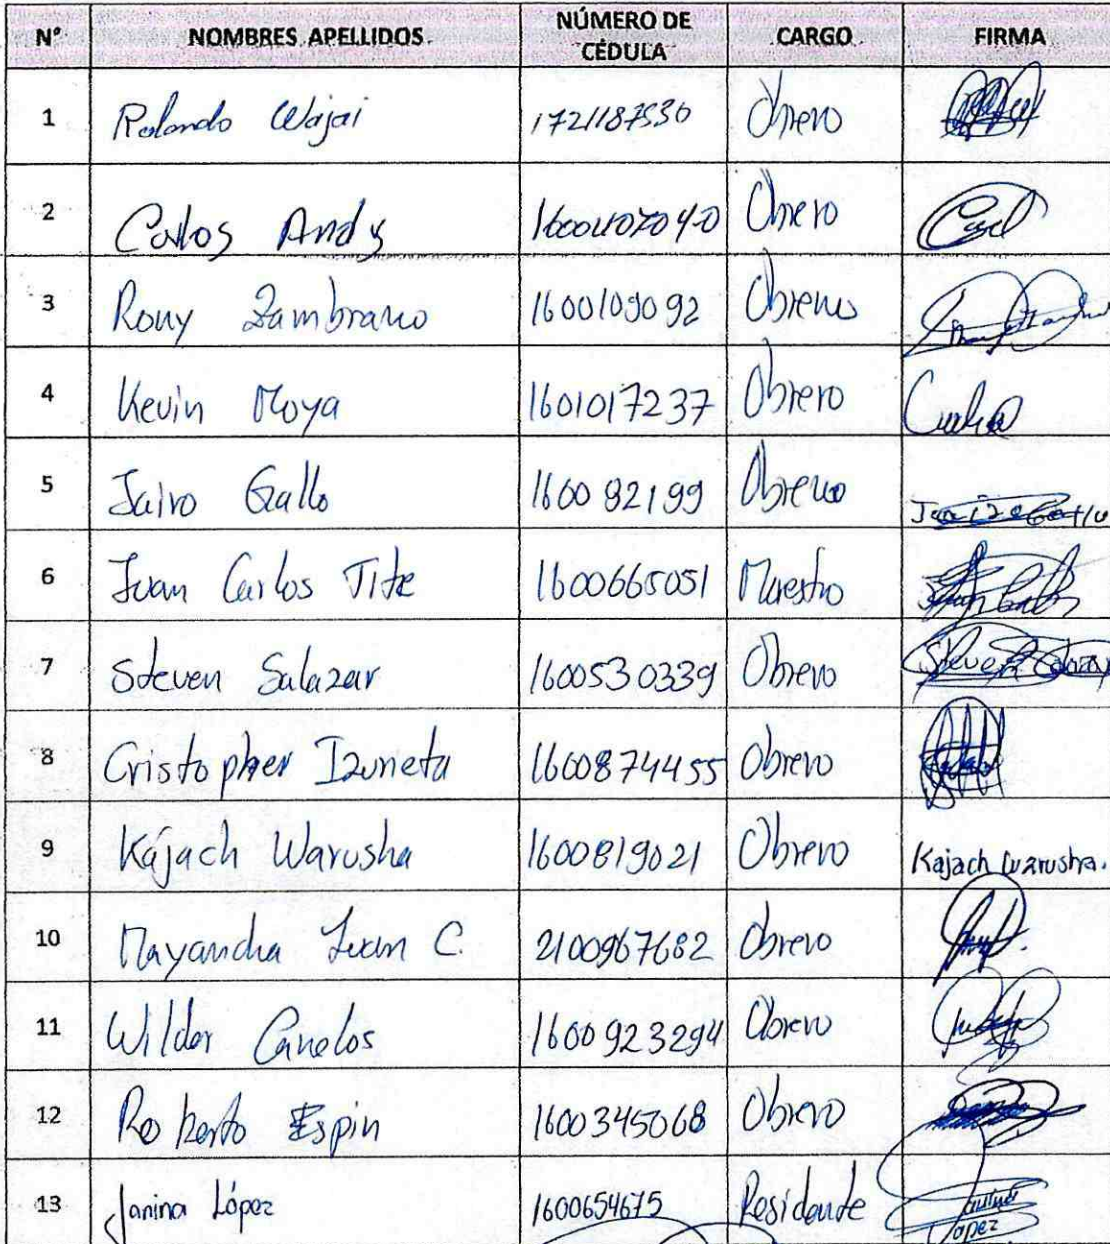 N° NOMBRES APELLIDOS NÚMERO DE CÉDULA CARGO FIRMA
1 Rolando Wajai 1721187530 Obrero
2 Carlos Andy Obrero
3 Rony Zambrano 1600109092 Obrero
4 Kevin Moya 1601017237 Obrero
5 Jairo Gallo 160092199 Obrero
6 Juan Carlos Tite 1600665051 Maestro
7 Steven Salazar 1600530339 Obrero
8 Cristopher Izuneta 1600874455 Obrero
9 Kájach Warusha 1600819021 Obrero Kajach Warusha.
10 Mayancha Juan C. 2100967682 Obrero
11 Wilder Canelos 1600923294 Obrero
12 Roberto Espin 1600345068 Obrero
13 Janina López 1600654675 Residente López